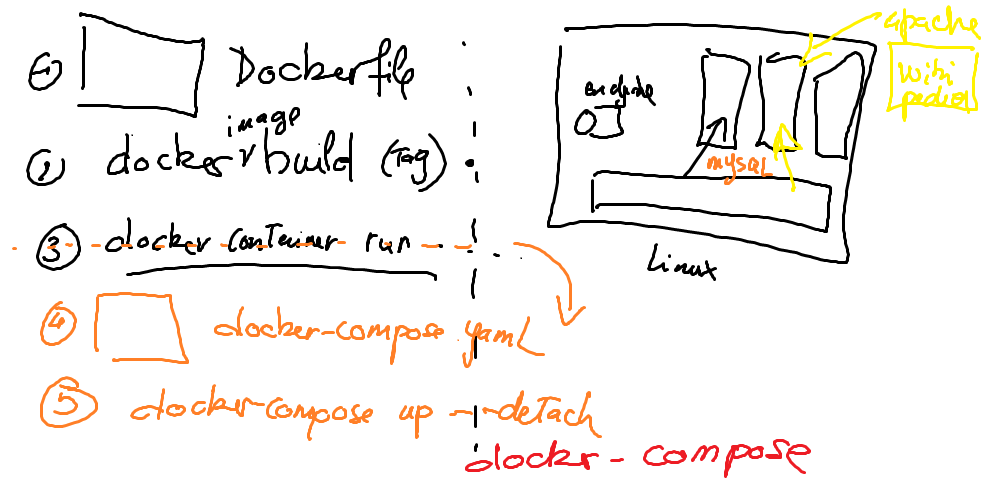 1 Dockerfile
image
2 docker build (Tag)
3 docker container run
4 docker-compose.yaml
5 docker-compose up --detach
docker-compose
apache
wiki
mysqL
Linux